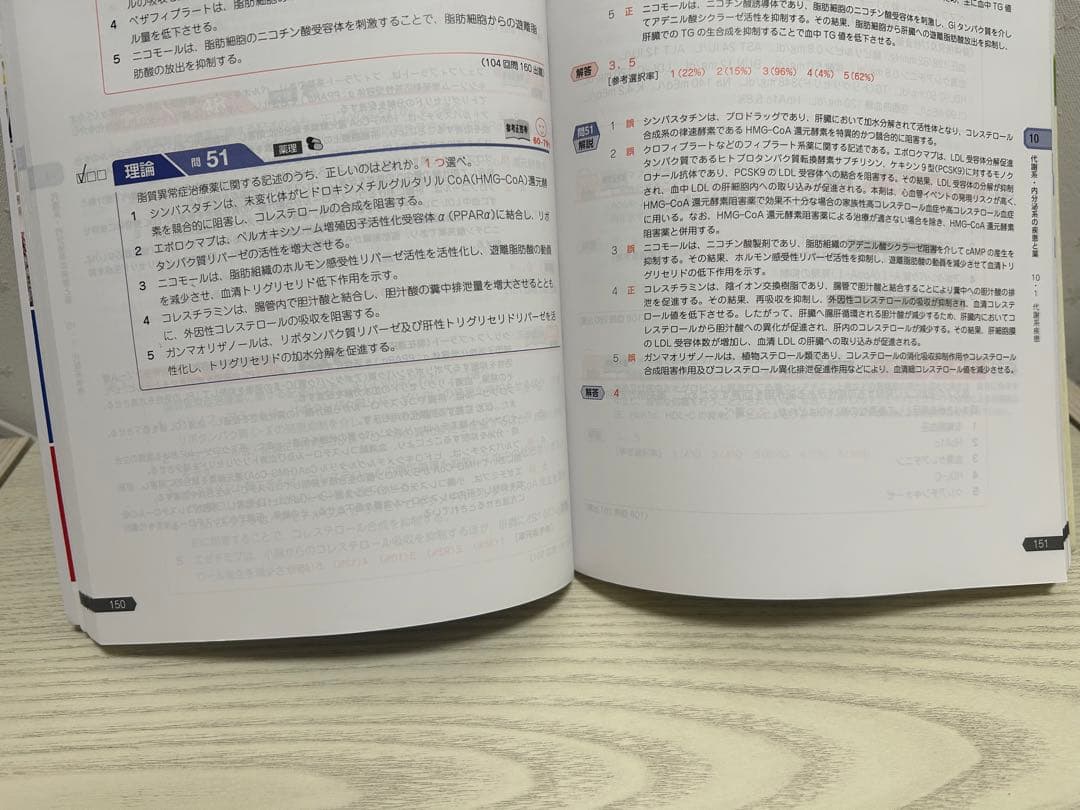 4 ベザフィブラートは、脂肪細胞の
ル量を低下させる。
5 ニコモールは、脂肪細胞のニコチン酸受容体を刺激することで、脂肪細胞からの遊離脂
肪酸の放出を抑制する。
(104回問160出題)
参考正答率
60-79%
理論 問51 薬理
脂質異常症治療薬に関する記述のうち、正しいのはどれか。1つ選べ。
1 シンバスタチンは、未変化体がヒドロキシメチルグルタリルCoA(HMG-CoA)還元酵
素を競合的に阻害し、コレステロールの合成を阻害する。
2 エボロクマブは、ペルオキシソーム増殖因子活性化受容体α(PPARα)に結合し、リポ
タンパク質リパーゼの活性を増大させる。
3 ニコモールは、脂肪組織のホルモン感受性リパーゼ活性を活性化し、遊離脂肪酸の動員
を減少させ、血清トリグリセリド低下作用を示す。
4 コレスチラミンは、腸管内で胆汁酸と結合し、胆汁酸の糞中排泄量を増大させるととも
に、外因性コレステロールの吸収を阻害する。
5 ガンマオリザノールは、リポタンパク質リパーゼ及び肝性トリグリセリドリパーゼを活
性化し、トリグリセリドの加水分解を促進する。
150
5 正 ニコモールは、ニコチン酸誘導体であり、脂肪細胞のニコチン酸受容体を刺激し、Giタンパク質を介し
てアデニル酸シクラーゼ活性を抑制する。その結果、脂肪細胞から肝臓への遊離脂肪酸放出を抑制し、
肝臓でのTGの生合成を抑制することで血中TG値を低下させる。
解答 3，5
[参考選択率] 1(22%) 2(15%) 3(96%) 4(4%) 5(62%)
問51
解説
1 誤 シンバスタチンは、プロドラッグであり、肝臓において加水分解されて活性体となり、コレステロール
合成系の律速酵素であるHMG-CoA還元酵素を特異的かつ競合的に阻害する。
2 誤 クロフィブラートなどのフィブラート系薬に関する記述である。エボロクマブは、LDL受容体分解促進
タンパク質であるヒトプロタンパク質転換酵素サブチリシン、ケキシン9型(PCSK9)に対するモノク
ローナル抗体であり、PCSK9のLDL受容体への結合を阻害する。その結果、LDL受容体の分解が抑制
され、血中LDLの肝細胞内への取り込みが促進される。本剤は、心血管イベントの発現リスクが高く、
HMG-CoA還元酵素阻害薬で効果不十分な場合の家族性高コレステロール血症や高コレステロール血症
に用いる。なお、HMG-CoA還元酵素阻害薬による治療が適さない場合を除き、HMG-CoA還元酵素
阻害薬と併用する。
3 誤 ニコモールは、ニコチン酸製剤であり、脂肪組織のアデニル酸シクラーゼ阻害を介してcAMPの産生を
抑制する。その結果、ホルモン感受性リパーゼ活性を抑制し、遊離脂肪酸の動員を減少させて血清トリ
グリセリドの低下作用を示す。
4 正 コレスチラミンは、陰イオン交換樹脂であり、腸管で胆汁酸と結合することにより糞中への胆汁酸の排
泄を促進する。その結果、再吸収を抑制し、外因性コレステロールの吸収が抑制され、血清コレステ
ロール値を低下させる。したがって、肝臓へ腸肝循環される胆汁酸が減少するため、肝臓内においてコ
レステロールから胆汁酸への異化が促進され、肝内のコレステロールが減少する。その結果、肝細胞膜
のLDL受容体数が増加し、血清LDLの肝臓への取り込みが促進される。
5 誤 ガンマオリザノールは、植物ステロール類であり、コレステロールの消化吸収抑制作用やコレステロール
合成阻害作用及びコレステロール異化排泄促進作用などにより、血清総コレステロール値を減少させる。
解答 4
10
代謝系・内分泌系の疾患と薬
10・1 代謝系疾患
151